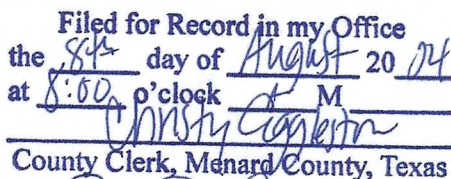 Filed for Record in my Office
the 8th day of August 20 04
at 8:00 o'clock A M
Christy Eggleston
County Clerk, Menard County, Texas